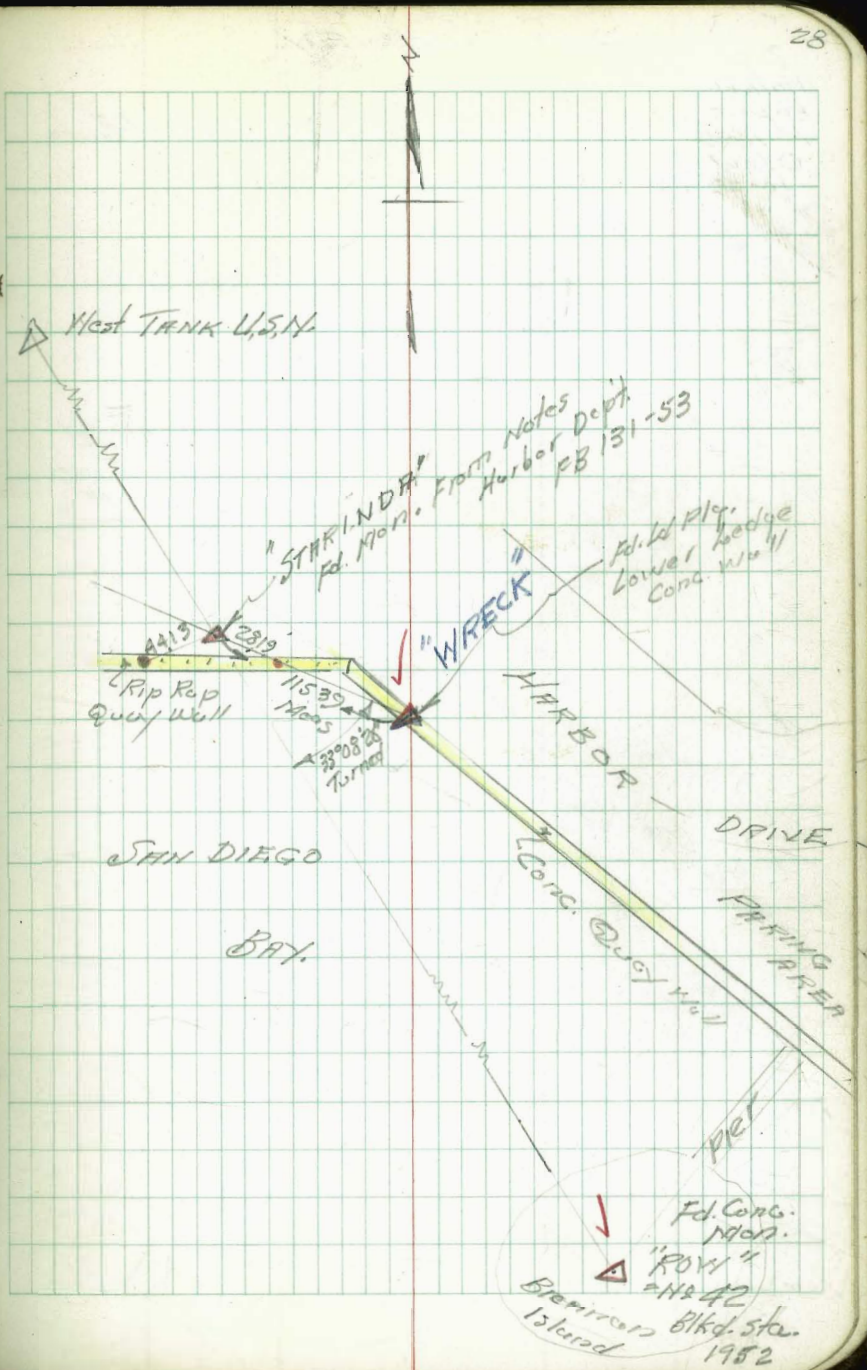 28
N
West TANK U.S.N.
"STARINDA"
Fd. Mon. From Notes
Harbor Dept.
FB 131-53
Fd. Ld Plg.
Lower Ledge
Conc. Wall
"WRECK"
4413
2819
Rip Rap
Quay Wall
11539
Meas
33°08'28"
Turned
HARBOR -
DRIVE
SAN DIEGO
BAY.
Conc. Quay Wall
PARING
AREA
Pier
Fd. Conc.
Mon.
"ROW"
= No 42
Blkd. Sta.
1952
Island